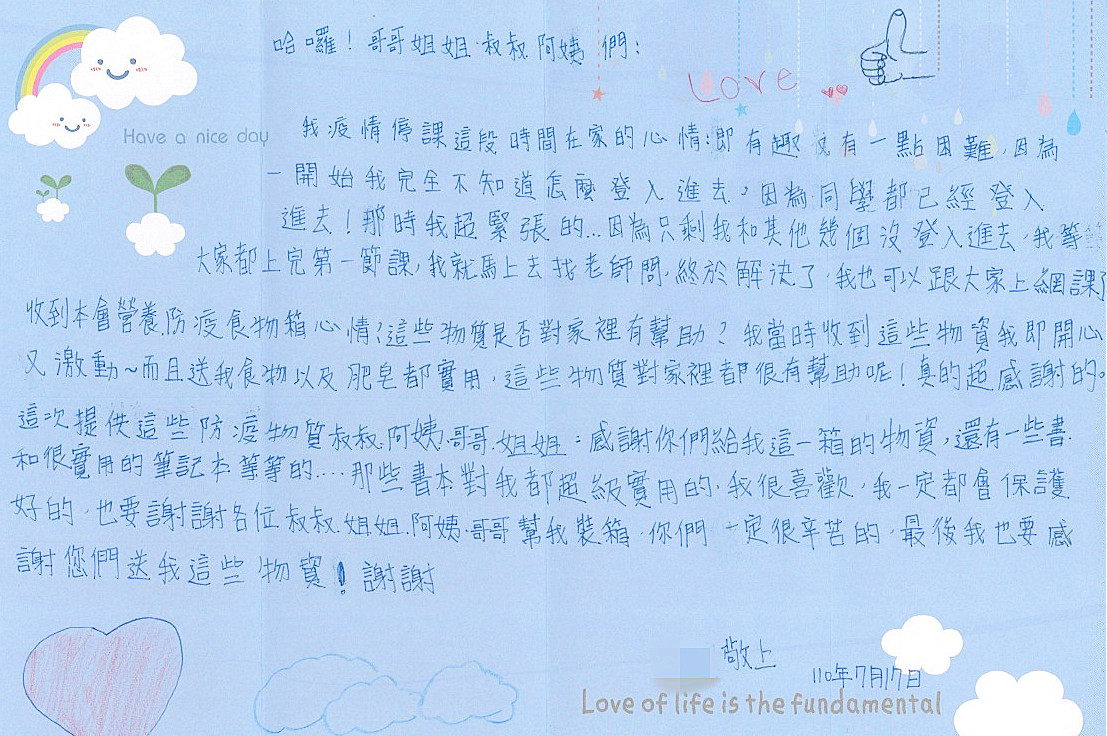 哈囉！哥哥姐姐.叔叔.阿姨們：
Love
Have a nice day
我疫情停課這段時間在家的心情:即有趣又有一點困難,因為
一開始我完全不知道怎麼登入進去,因為同學都已經登入
進去！那時我超緊張的...因為只剩我和其他幾個沒登入進去,我等
大家都上完第一節課,我就馬上去找老師問,終於解決了,我也可以跟大家上網課了
收到本會營養防疫食物箱心情?這些物質是否對家裡有幫助？我當時收到這些物資我即開心
又激動~而且送我食物以及肥皂都實用,這些物質對家裡都很有幫助呢！真的超感謝的。
這次提供這些防疫物質叔叔.阿姨.哥哥.姐姐：感謝你們給我這一箱的物資,還有一些書
和很實用的筆記本等等的...那些書本對我都超級實用的,我很喜歡,我一定都會保護
好的,也要謝謝各位叔叔.姐姐.阿姨.哥哥幫我裝箱,你們一定很辛苦的,最後我也要感
謝您們送我這些物資！謝謝
敬上
110年7月17日
Love of life is the fundamental